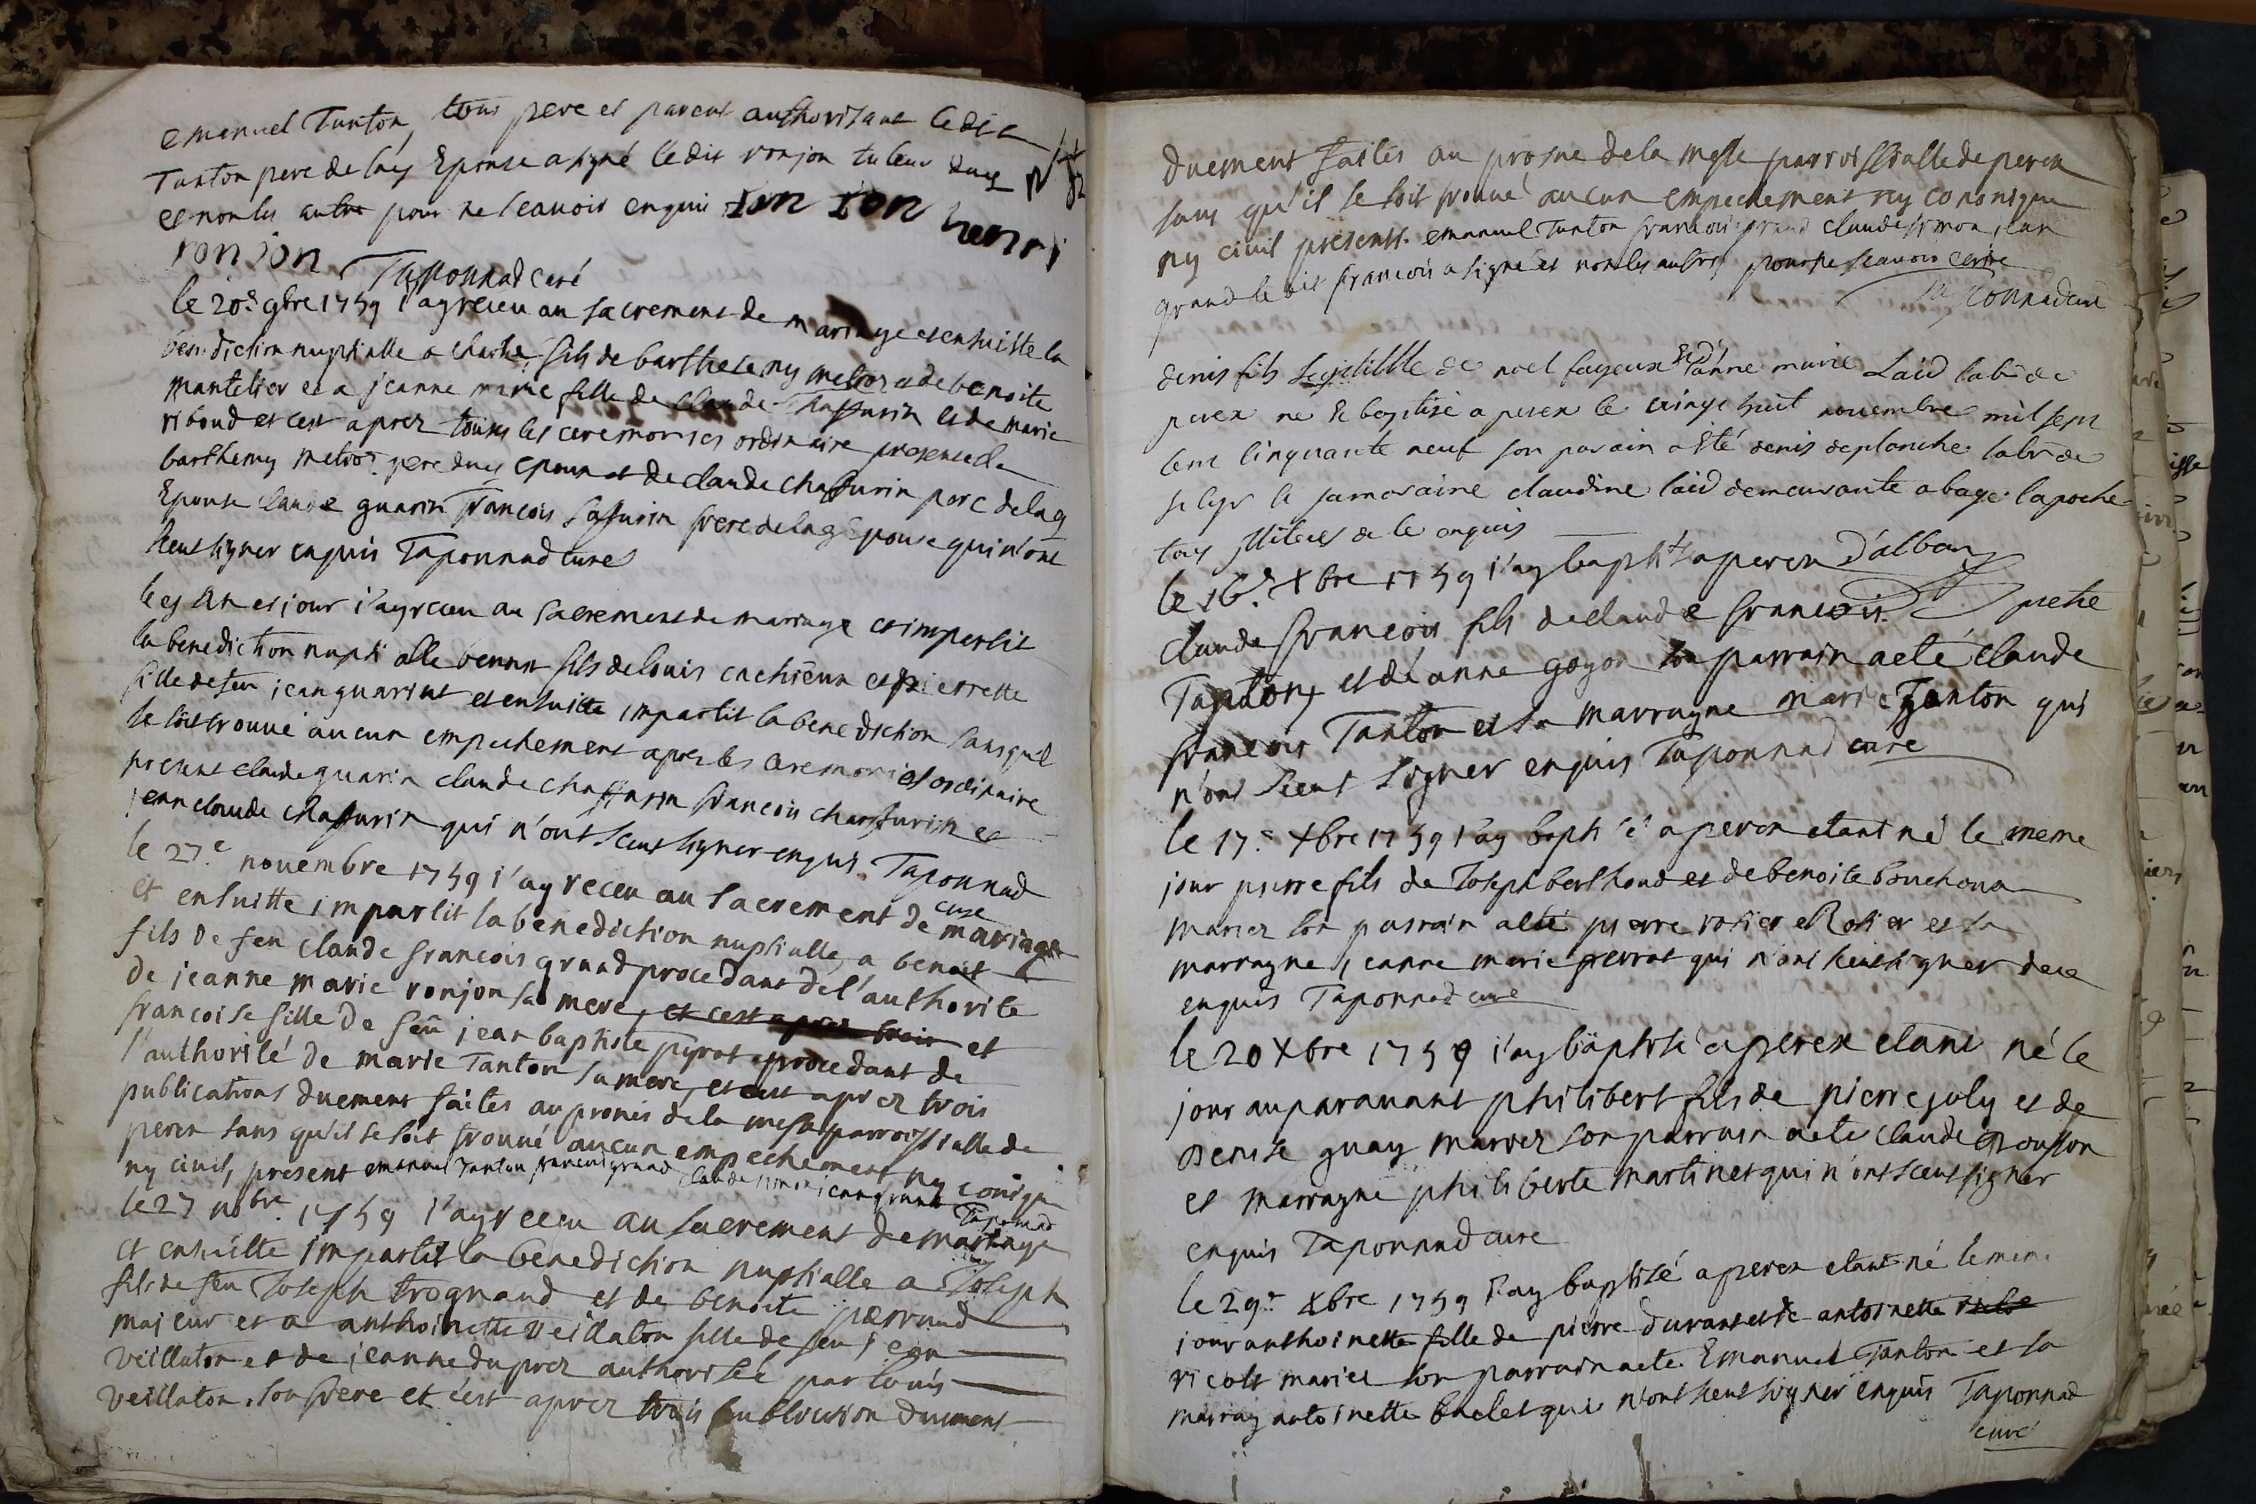 emanuel Tanton, tous pere et parent authorisant ledit
Tanton pere de lad Epouse a signé ledit ronjon tuteur dud
et non les autre pour ne scavoir enquis ron jon henri
ron jon
Taponnad curé
le 20e 9bre 1759 j'ay receu au sacrement de mariage et ensuitte la
benediction nuptialle a charle fils de barthelemy metroz et de benoite
mantelier et a jeanne marie fille de claude chaffurin et de marie
riboud et cest aprez touttes les ceremonies ordinaire presence de
barthemy metroz pere dud epoux et de claude chaffurin pere de lad
Epouse claude guarin francois chaffurin frere de lad Epouse qui n'ont
sceut signer enquis Taponnad curé
les an et jour j'ay receu au sacrement de mariage et impartit
la benediction nuptialle benoit fils de louis cachieux et pierrette
fille de feu jean guarint et ensuitte impartit la benediction sans qu'il
se soit trouvé aucun empechement apres les ceremonies ordinaire
present claude guarin claude chaffurin francois chaffurin et
jean claude chaffurin qui n'ont sceut signer enquis. Taponnad
curé
le 27.e novembre 1759 j'ay receu au sacrement de mariage
et ensuitte impartit la benediction nuptialle, a benoit
fils de feu claude francois grand procedant de l'authorite
de jeanne marie ronjon sa mere, et cest aprez trois et
francoise fille de feu jean baptiste pyrat procedant de
l'authorité de marie Tanton sa mere, et cest aprez trois
publications duement faites au pronis de la messe parroissialle de
perex sans qu'il se soit trouvé aucun empechement ny conique
ny civil, present emanuel Tanton francois grand claude simon jean grand
Taponnad
le 27 nobre 1759 j'ay receu au sacrement de mariage
et ensuitte impartit la benediction nuptialle a Joseph
fils de feu Joseph trognaud et de benoite perraud
majeur et a anthoinette veillaton fille de feu jean
veillaton et de jeanne duprez authorisée par louis
veillaton son frere et c'est aprez trois publication duement
duement faites au prosne de la messe parroissialle de perex
sans qu'il se soit trouvé aucun empechement ny canonique
ny civil presents. emanuel Tanton francois grand claude simon, jean
grand ledit francois a signé et non les autres pour ne scavoir ecrire
Taponnad curé
denis fils legitime de noel fayeux et d'anne marie Laid lab. de
perex né et baptizé a perex le vingt huit novembre mil sept
cent cinquante neuf son parain a été denis deplanche lab. de
st cyr la maraine claudine laid demeurante a bage. la poche
tous illiteres de ce enquis
d'alban
prêtre
le 16.e Xbre 1759 j'ay baptisé a perex
claude francois fils de claude francois
Tanton et de anne goyon son parrain a eté claude
francois Tanton et sa marragne marie Tanton qui
n'ont sceut signer enquis Taponnad curé
le 17.e Xbre 1759 j'ay baptisé a perex etant né le meme
jour pierre fils de Joseph berthoud et de benoite bouchoux
mariez son parrain a eté pierre rosier et Rosier et sa
marragne, jeanne marie perrat qui n'ont sceut signer de ce
enquis Taponnad curé
le 20 Xbre 1759 j'ay baptisé a perex etant né le
jour auparavant philibert fils de pierre joly et de
denise guay mariez son parrain a eté claude rousson
et marragne philiberte martinet qui n'ont sceut signer
enquis Taponnad curé
le 29.e Xbre 1759 j'ay baptisé a perex etant né le meme
jour anthoinette fille de pierre durand et de antoinette
ricolt mariez son parrain a eté Emanuel Tanton et sa
marray antoinette baclet qui n'ont sceut signer enquis Taponnad
curé